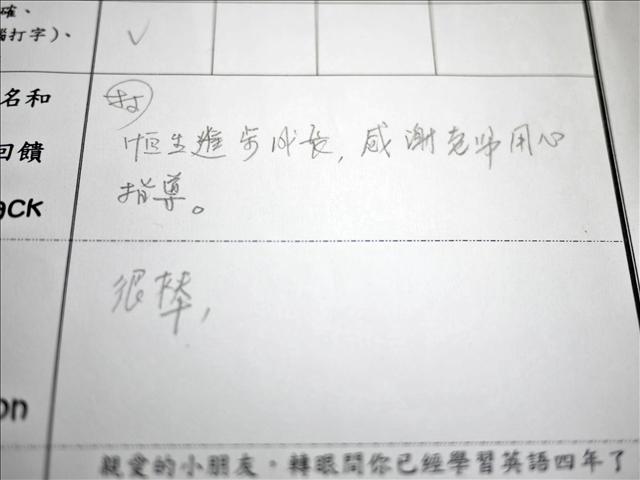 確、
腦打字)、
名和
回饋
ack
恒生進步成長,感謝老師用心
指導。
很棒,
on
親愛的小朋友,轉眼間你已經學習英語四年了